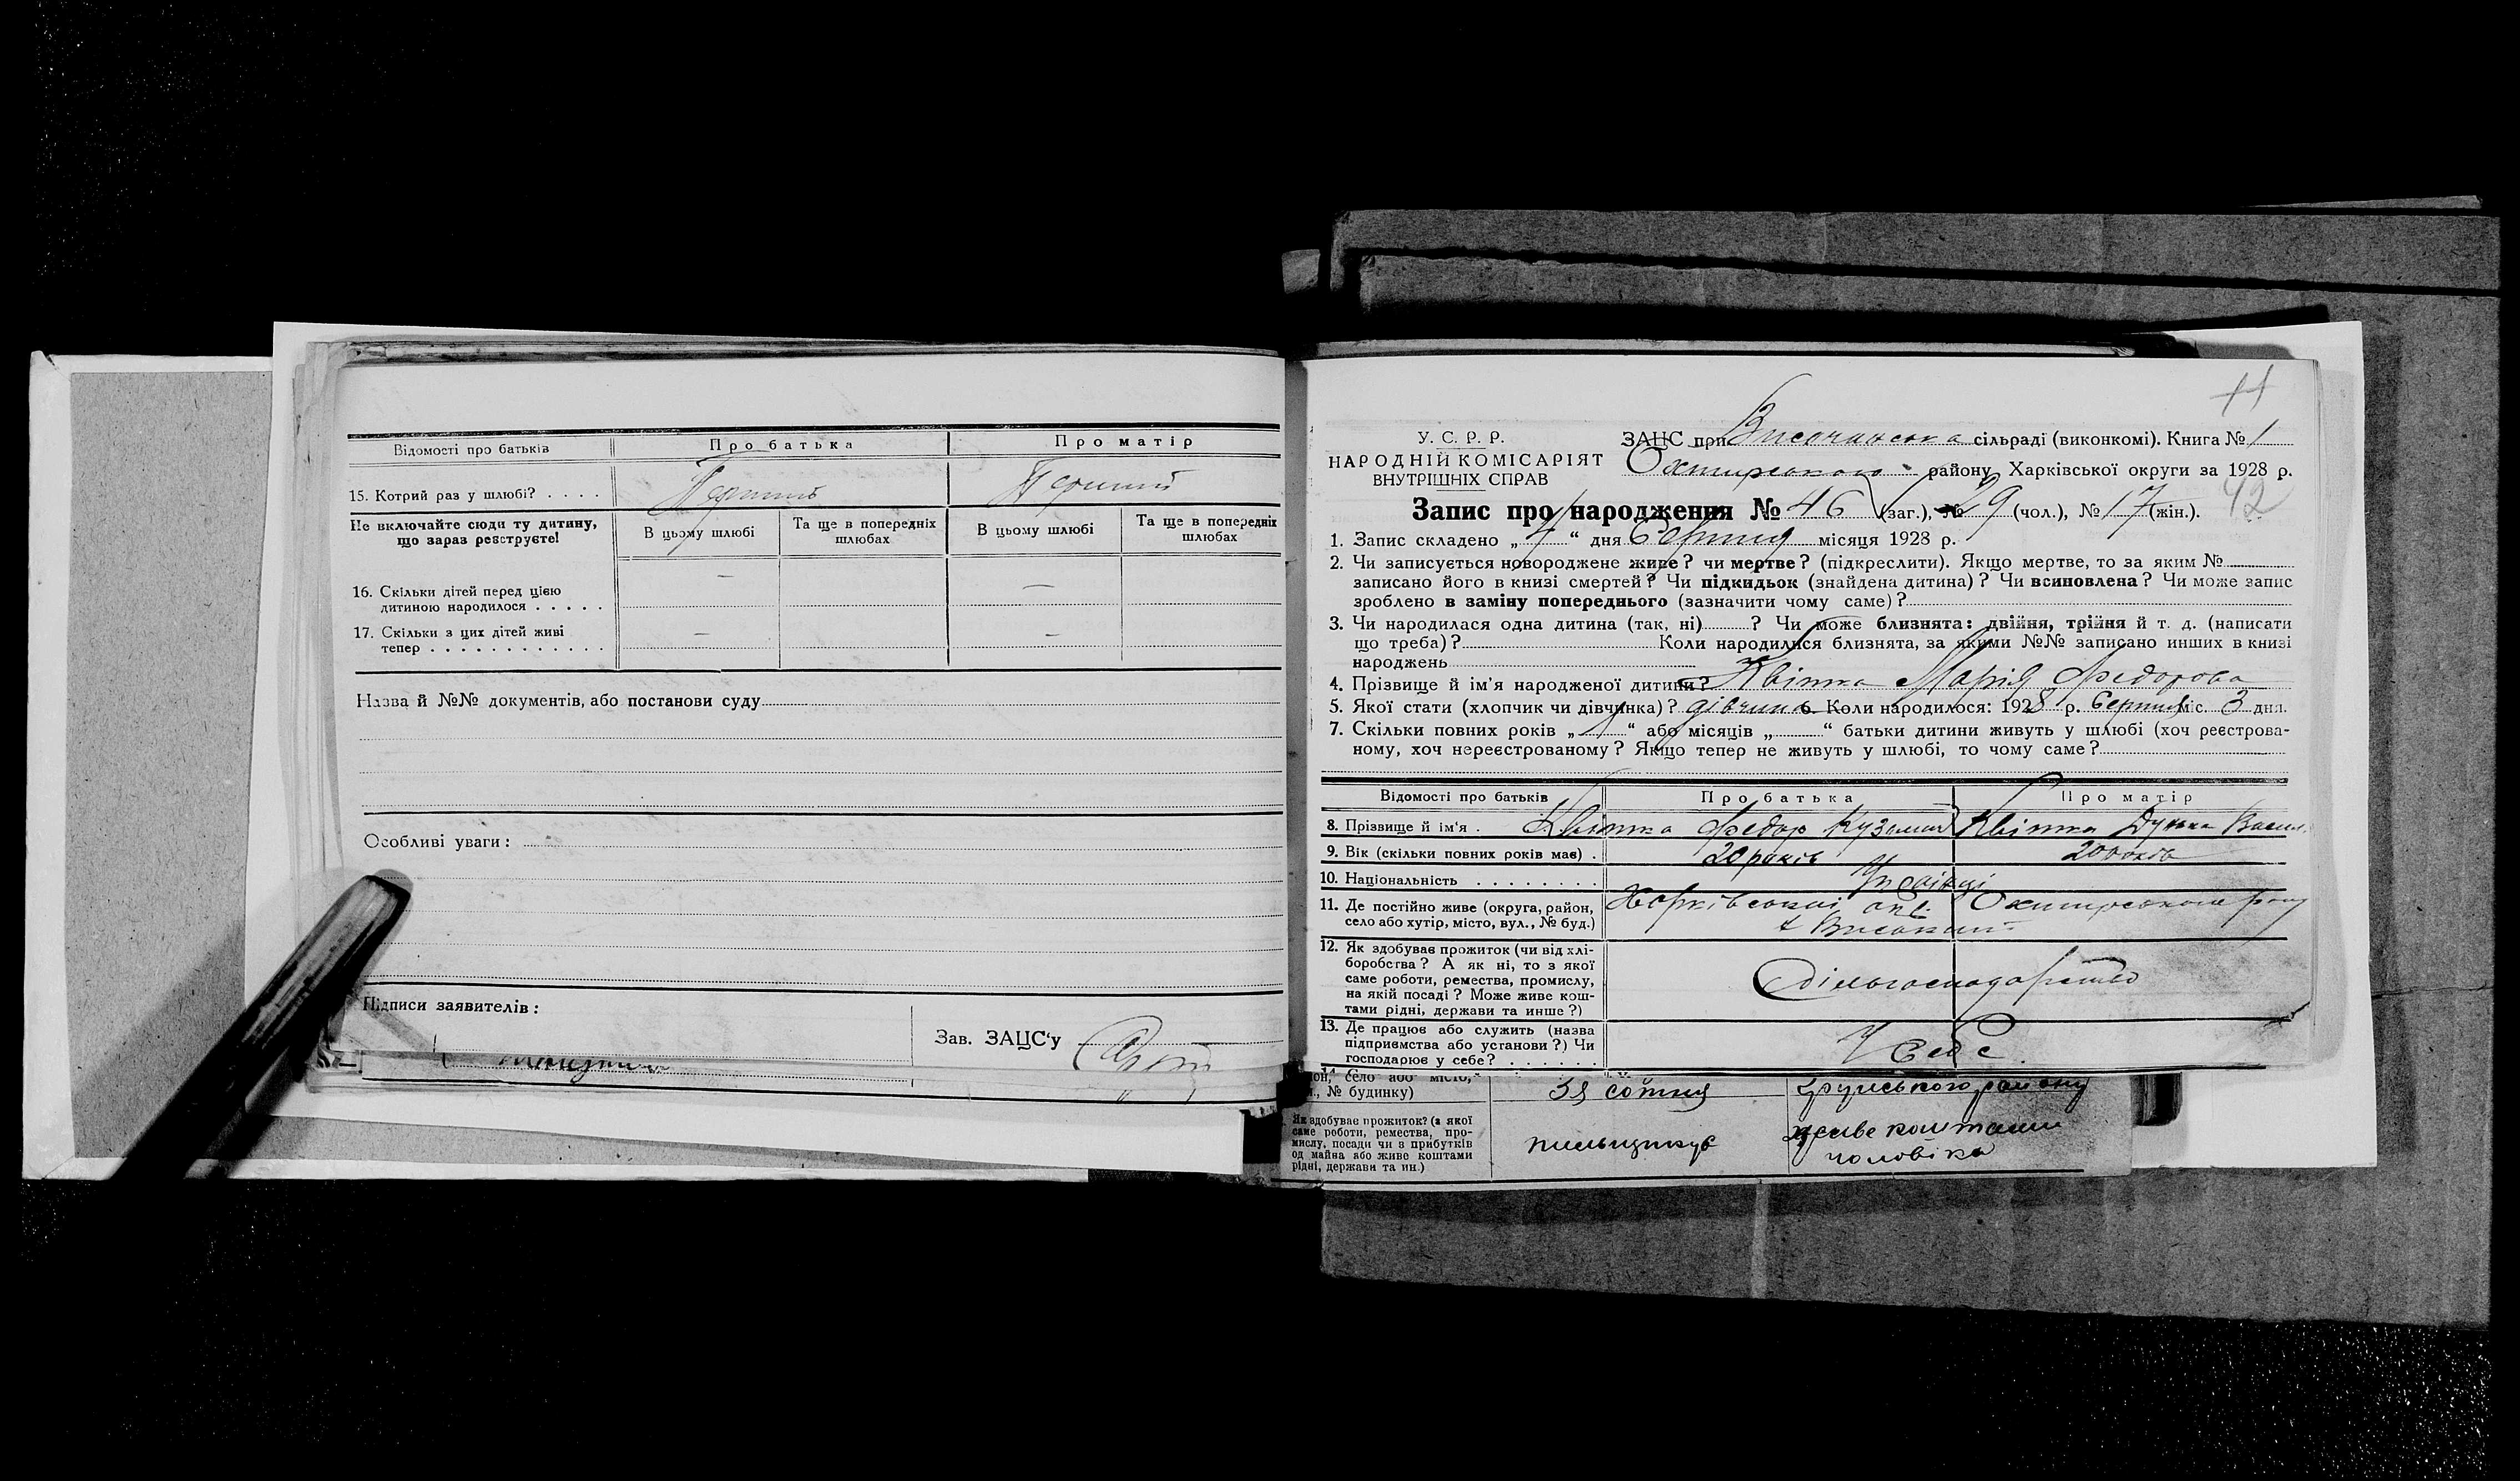 Відомості про батьків Про батька Про матір
15. Котрий раз у шлюбі? . . . . Перший Перший
Не включайте сюди ту дитину, що зараз реєструєте!
В цьому шлюбі Та ще в попередніх шлюбах В цьому шлюбі Та ще в попередніх шлюбах
16. Скільки дітей перед цією
дитиною народилося . . . . . — —
17. Скільки з цих дітей живі
тепер . . . . . . . . . . . . — —
Назва й №№ документів, або постанови суду
Особливі уваги:
Підписи заявителів:
Зав. ЗАЦС‘у
11
У. С. Р. Р.
НАРОДНІЙ КОМІСАРІЯТ
ВНУТРІШНІХ СПРАВ
ЗАЦС при сільраді (виконкомі). Книга № 1
Охтирського району, Харківської округи за 1928 р.
42
Запис про народження № 46 (заг.), № 29 (чол.), № 17 (жін.).
1. Запис складено „ 4 “ дня Серпня місяця 1928 р.
2. Чи записується новороджене живе? чи мертве? (підкреслити). Якщо мертве, то за яким №
записано його в книзі смертей? Чи підкидьок (знайдена дитина)? Чи всиновлена? Чи може запис
зроблено в заміну попереднього (зазначити чому саме)?
3. Чи народилася одна дитина (так, ні) ? Чи може близнята: двійня, трійня й т. д. (написати
що треба)? Коли народилися близнята, за якими №№ записано инших в книзі
народжень
4. Прізвище й ім’я народженої дитини? Квітка Марія Федорова
5. Якої стати (хлопчик чи дівчинка)? дівчина 6. Коли народилося: 1928 р. Серпня міс. 3 дня.
7. Скільки повних років „ 1 “ або місяців „ “ батьки дитини живуть у шлюбі (хоч реєстрова-
ному, хоч нереєстрованому? Якщо тепер не живуть у шлюбі, то чому саме?
Відомості про батьків Про батька Про матір
8. Прізвище й ім‘я . Квітка Федор Кузьмич Квітка Дунька Васил.
9. Вік (скільки повних років має) . 20 років 20 років
10. Національність . . . . . . . . Українці
11. Де постійно живе (округа, район,
село або хутір, місто, вул., № буд.) Харківської окр. Охтирського рану
12. Як здобуває прожиток (чи від хлі-
боробства? А як ні, то з якої
саме роботи, ремества, промислу,
на якій посаді? Може живе кош-
тами рідні, держави та инше?)
Сільгосподарство
13. Де працює або служить (назва
підприємства або установи?) Чи
господарює у себе? . . . . . .
У себе.
село або місто,
№ будинку)
38 сотня району
Як здобуває прожиток? (з якої
саме роботи, ремества, про-
мислу, посади чи з прибутків
од майна або живе коштами
рідні, держави та ин.)
живе коштами
чоловіка